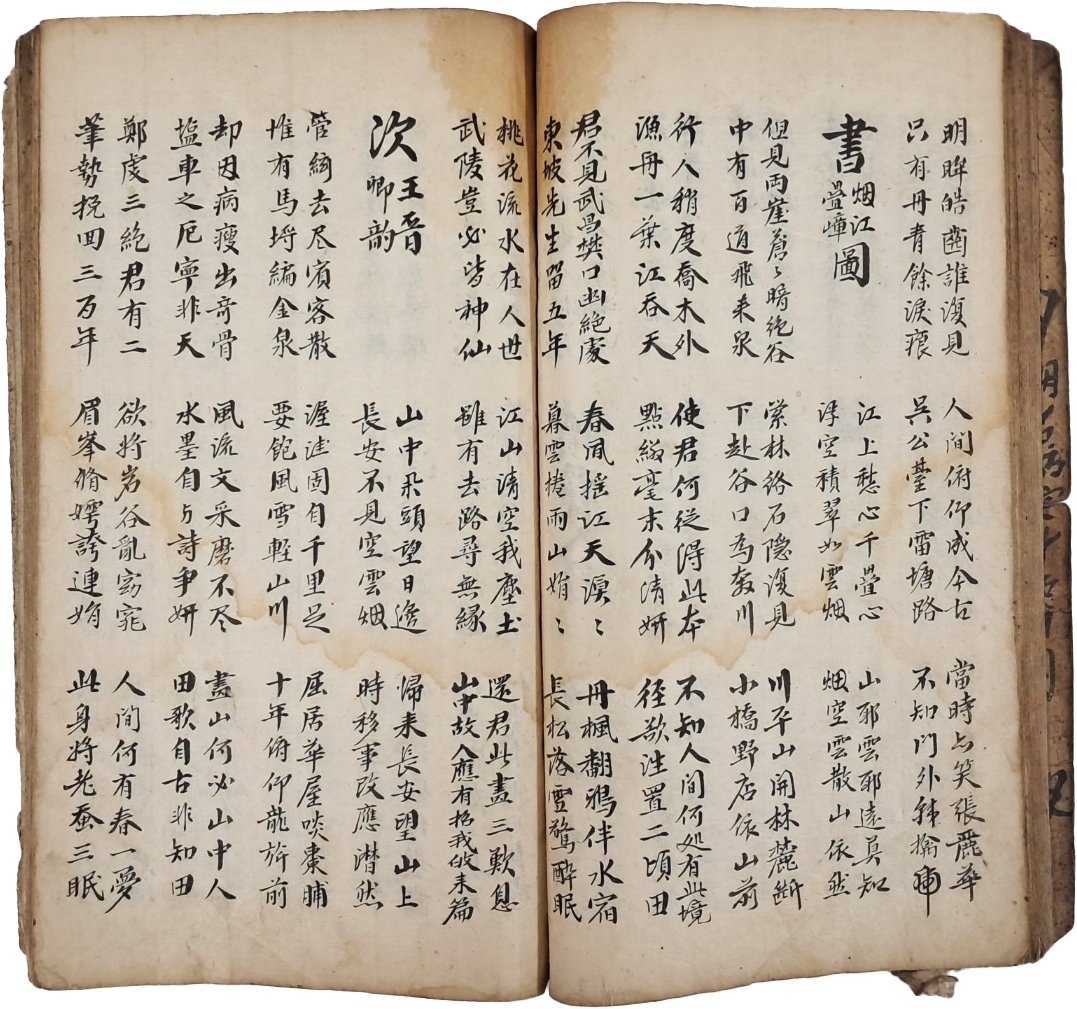 明眸皓齒誰復見
只有丹青餘淚痕
人間俯仰成今古
吳公臺下雷塘路
當時与笑張麗華
不知門外韓擒虎
書烟江疊嶂圖
江上愁心千疊心
浮空積翠如雲烟
山耶雲耶遠莫知
烟空雲散山依然
但見両崖蒼々暗絶谷
中有百道飛来泉
縈林絡石隠復見
下赴谷口為奔川
川平山開林麓断
小橋野店依山前
行人稍度喬木外
漁舟一葉江吞天
使君何從得此本
點綴毫末分清妍
不知人間何処有此境
徑欲注置二頃田
君不見武昌樊口幽絶處
東坡先生留五年
春風揺江天漠々
暮雲捲雨山娟々
丹楓翻鴉伴水宿
長松落雪驚醉眠
桃花流水在人世
武陵豈必皆神仙
江山清空我塵土
雖有去路尋無縁
還君此畫三歎息
山中故人應有招我皈来篇
次王晉卿韵
山中矢頭望日邊
長安不見空雲烟
歸来長安望山上
時移事改應潸然
管絃去尽賓客散
惟有馬埒編金泉
渥洼固自千里足
要飽風雪軽山川
屈居華屋啖棗脯
十年俯仰龍旂前
却因病瘦出奇骨
塩車之厄寧非天
風流文采磨不尽
水墨自与詩爭妍
畫山何必山中人
田歌自古非知田
鄭虔三絶君有二
筆勢挽回三百年
欲將岩谷亂窈窕
眉峯脩嫮誇連娟
人間何有春一夢
此身將老蚕三眠